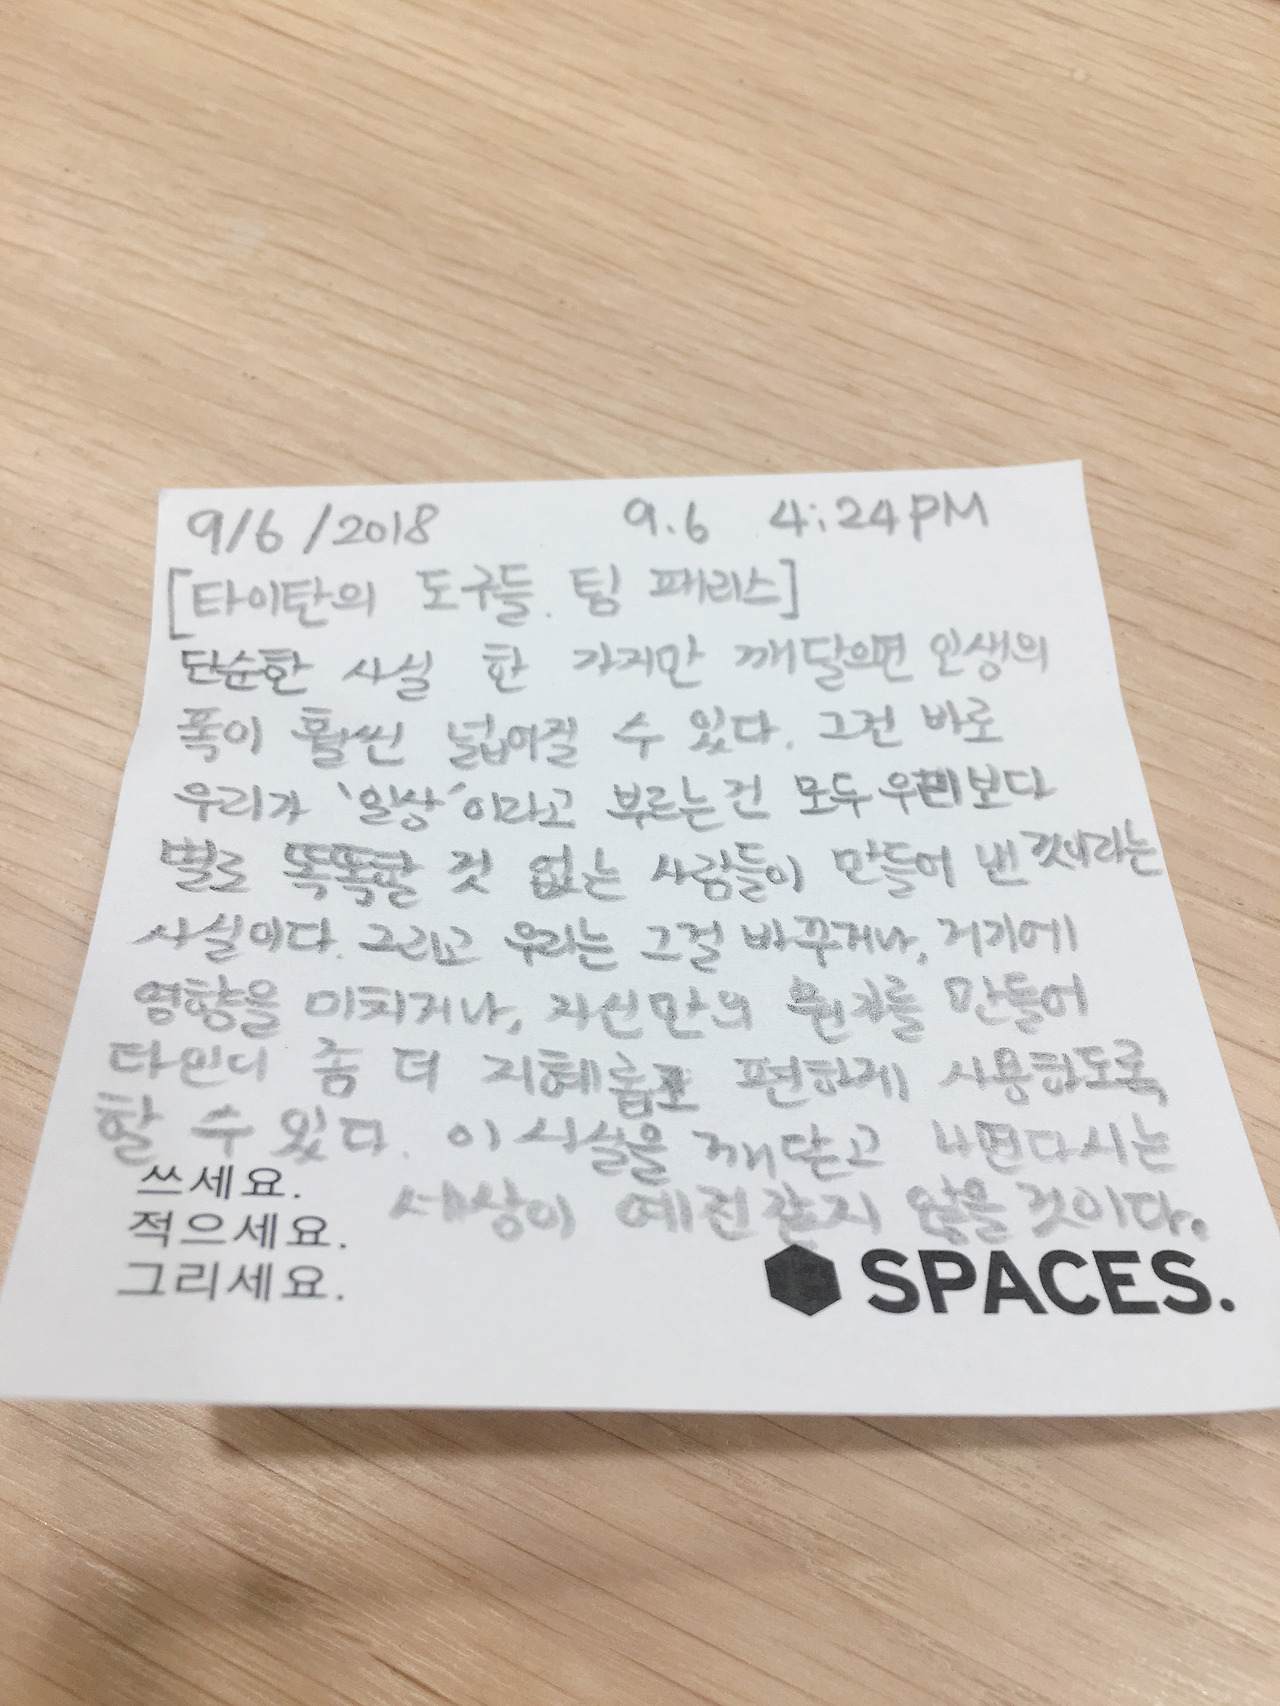 9/6/2018 9.6 4:24PM
[타이탄의 도구들. 팀 패리스]
단순한 사실 한 가지만 깨달으면 인생의
폭이 훨씬 넓어질 수 있다. 그건 바로
우리가 '일상'이라고 부르는건 모두 우리보다
별로 똑똑할 것 없는 사람들이 만들어 낸 것이라는
사실이다. 그리고 우리는 그걸 바꾸거나, 거기에
영향을 미치거나, 자신만의 뭔가를 만들어
타인이 좀 더 편하게 사용하도록
할 수 있다. 이 사실을 깨닫고 나면 다시는
세상이 예전같지 않을 것이다.
쓰세요.
적으세요.
그리세요.
SPACES.